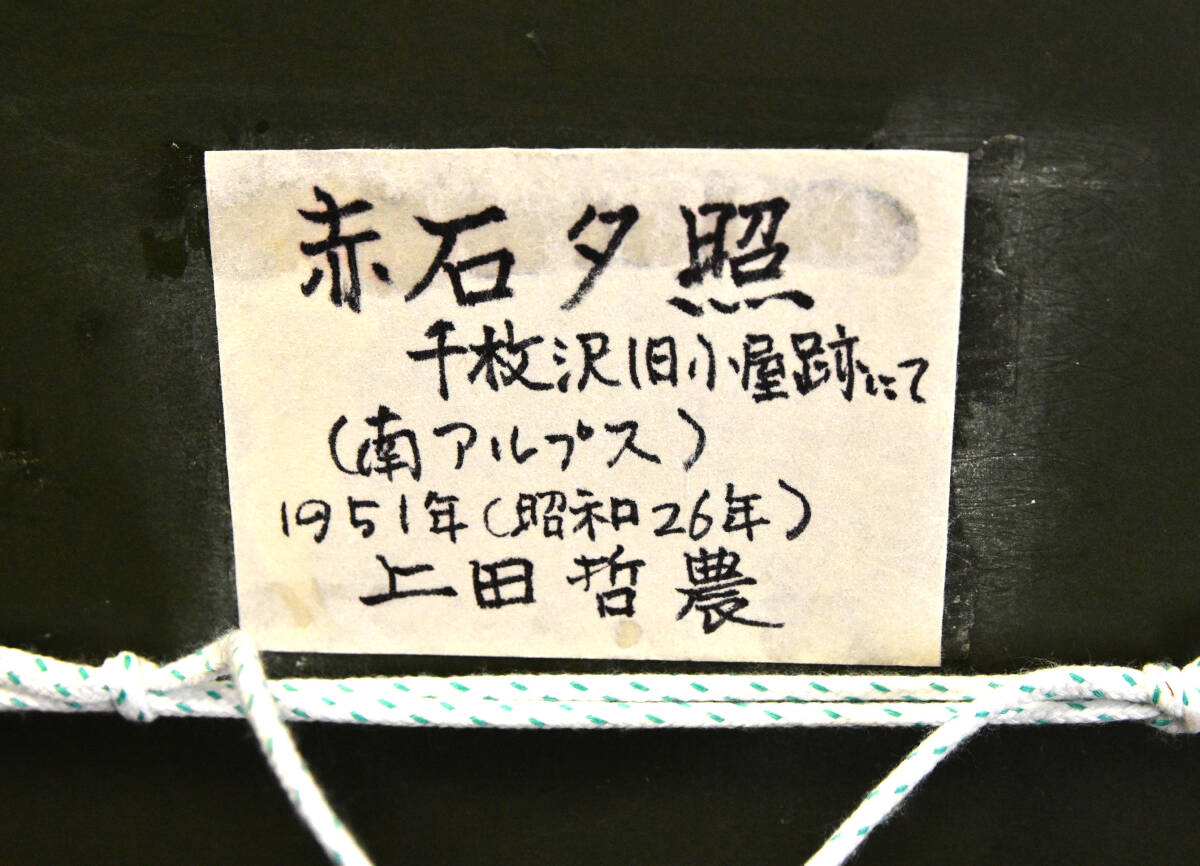 赤石夕照
千枚沢旧小屋跡にて
(南アルプス)
1951年(昭和26年)
上田哲農